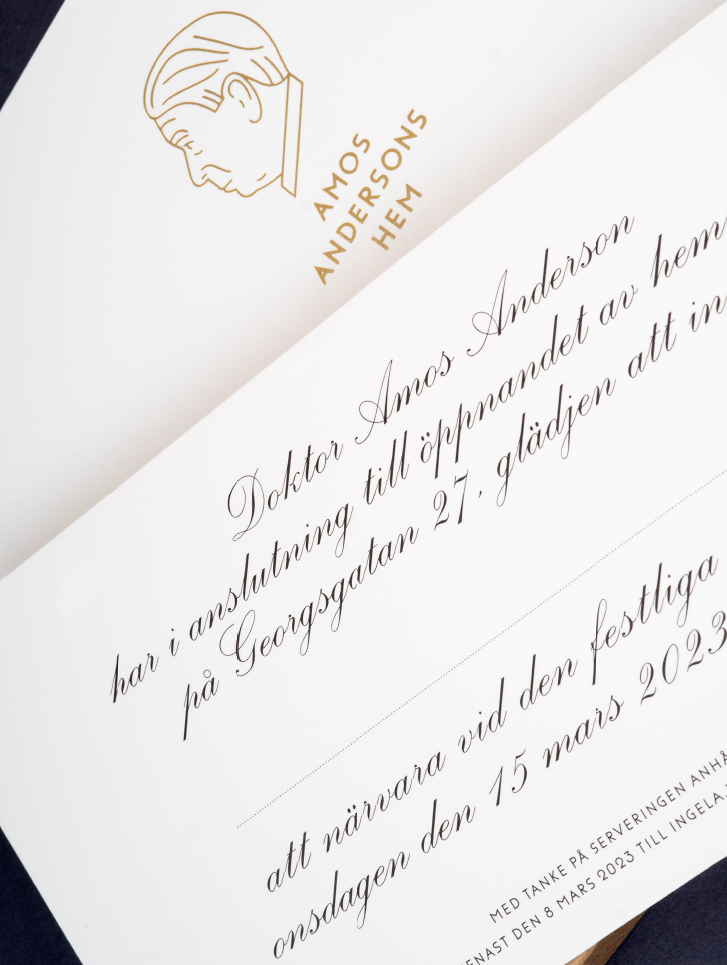 AMOS
ANDERSONS
HEM
Doktor Amos Anderson
har i anslutning till öppnandet av hem
på Georgsgatan 27, glädjen att in
att närvara vid den festliga
onsdagen den 15 mars 2023
MED TANKE PÅ SERVERINGEN ANHÅ
ENAST DEN 8 MARS 2023 TILL INGELA.